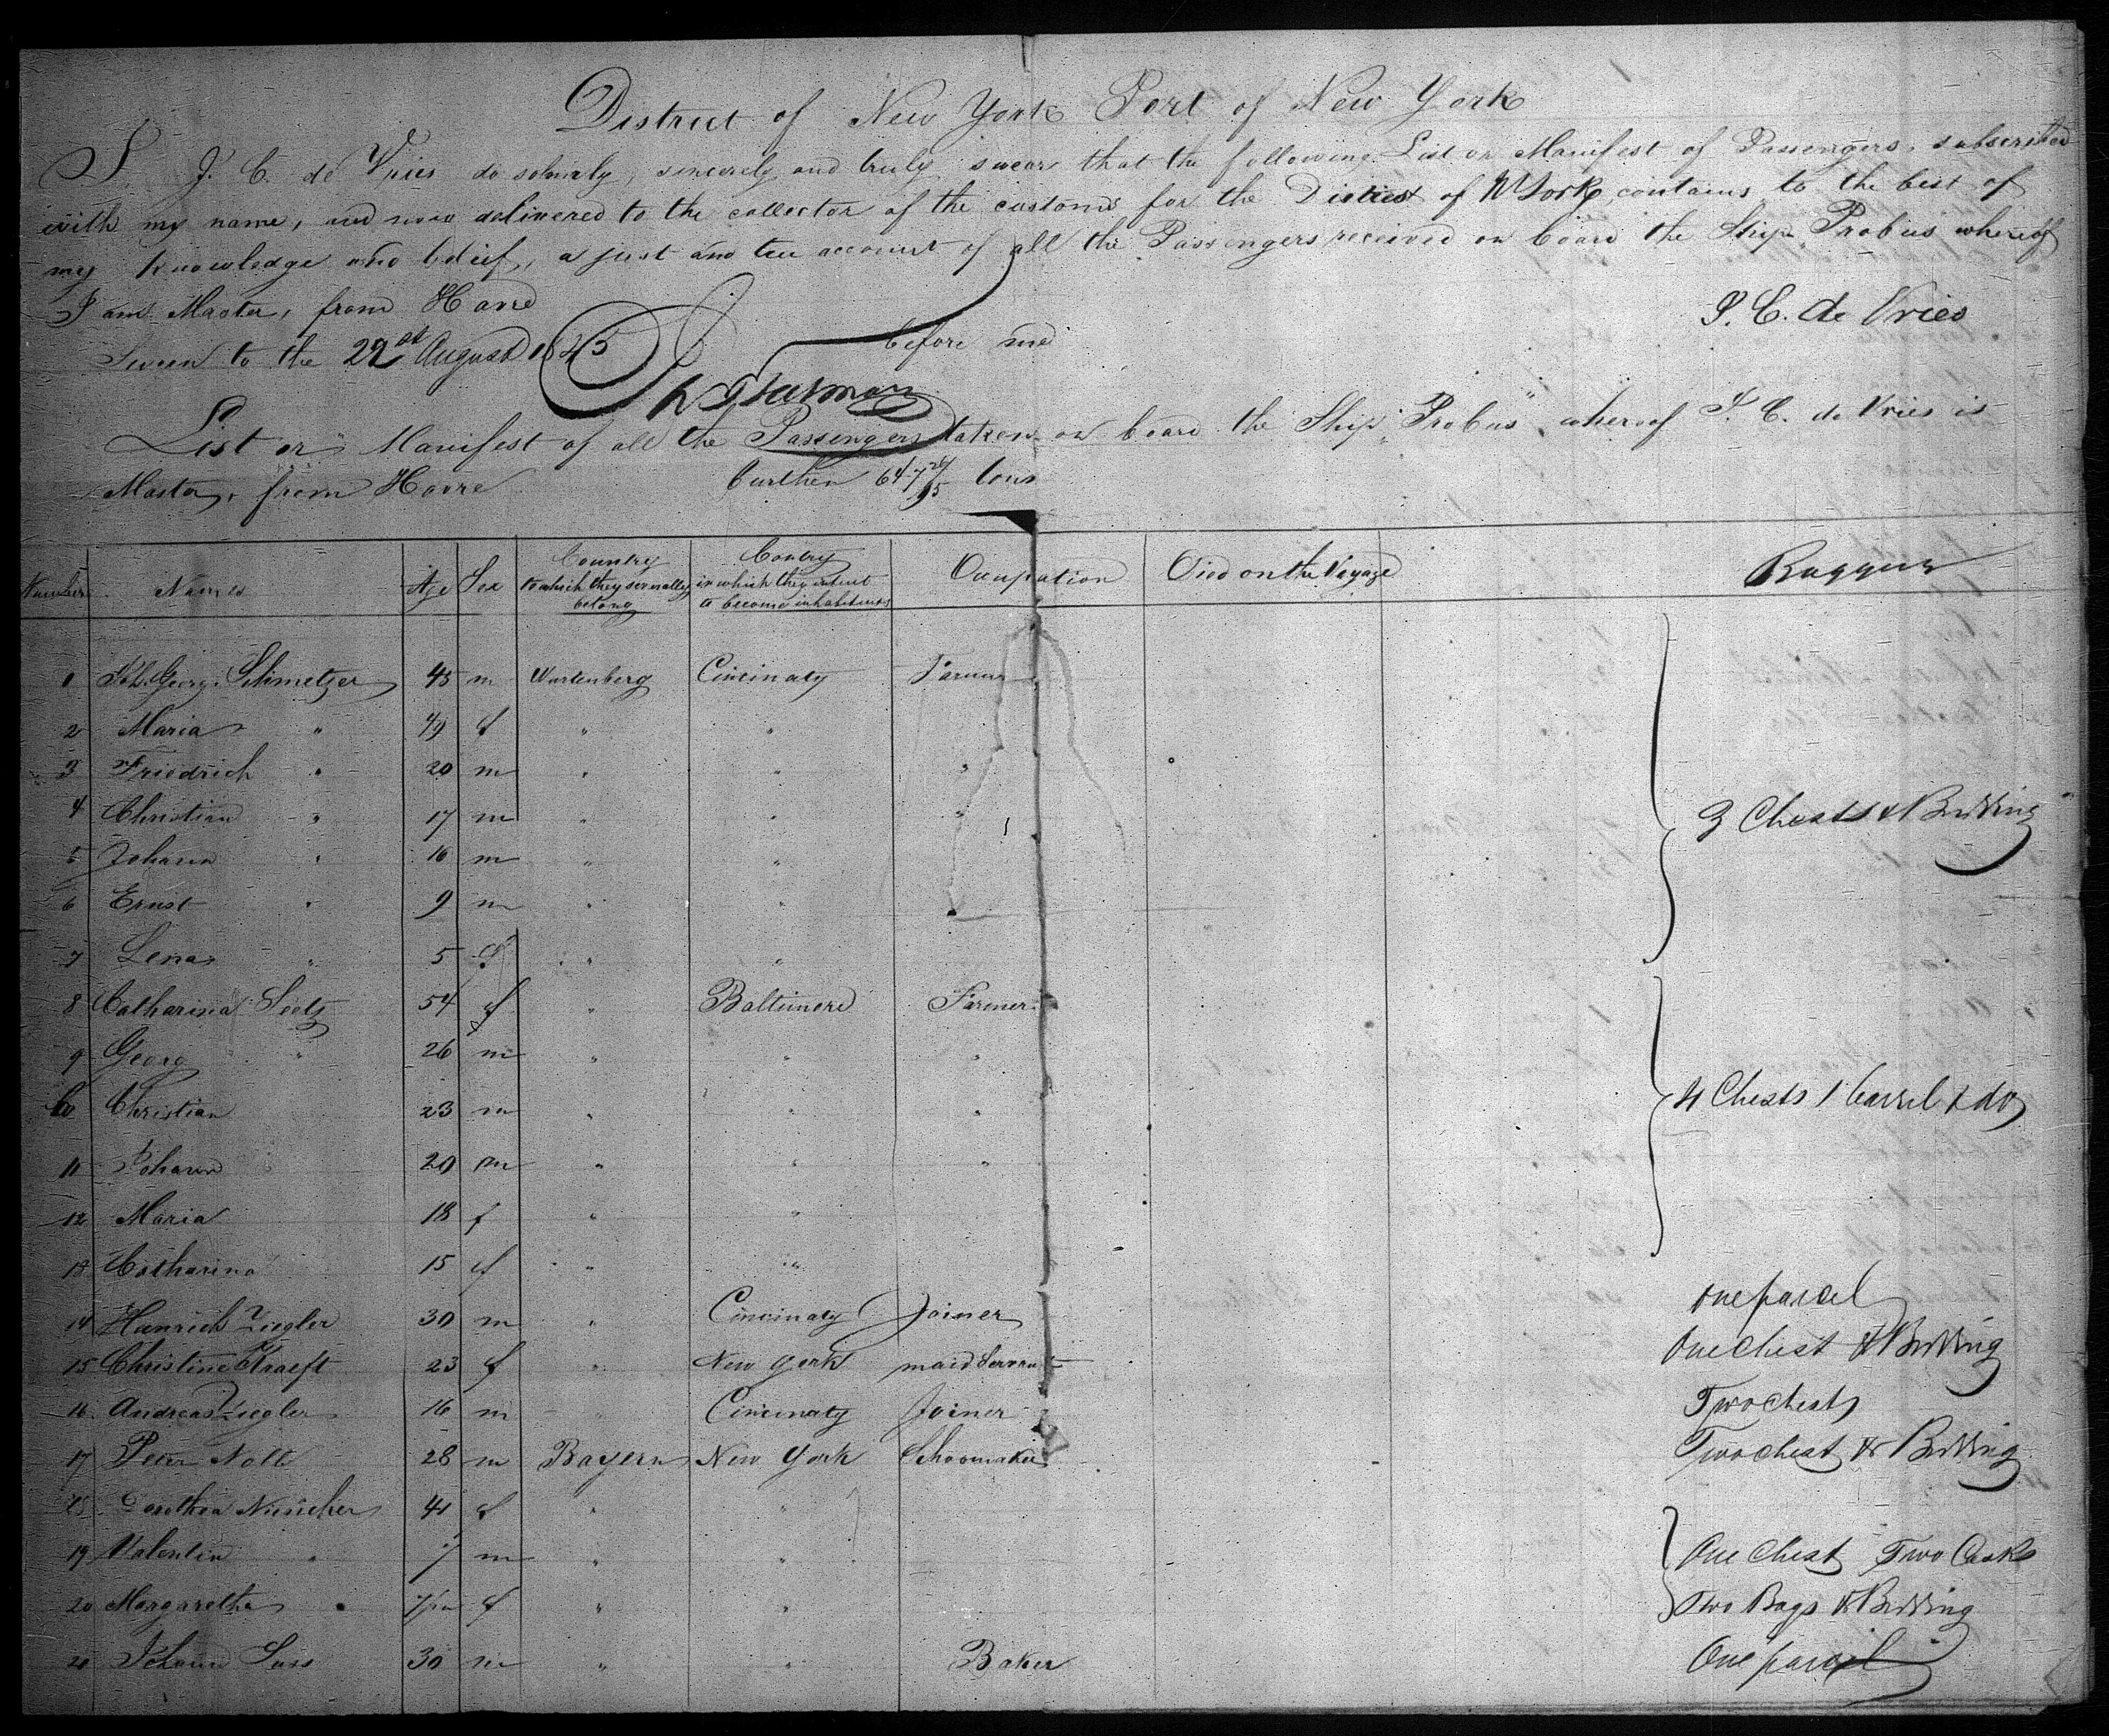 District of New York Port of New York
I J. C. de Vries do solemnly, sincerely and truly swear that the following List or Manifest of Passengers, subscribed
with my name, and now delivered to the collector of the customs for the District of N York contains to the best of
my knowledge and belief, a just and true account of all the Passengers received on board the Ship Probus whereof
I am Master, from Havre
J. C. de Vries
Sworn to the 22st August 1845 before me
List or Manifest of all the Passengers taken on board the Ship "Probus" whereof J. C. de Vries is
Master, from Havre burthen 647 26/95 tons
Number Names Age Sex Country to which they severally belong Contry in which they intent to become inhabitants Occupation Died on the Voyage
1 Joh. Georg. Schmetzer 45 m Wurtenberg Cincinaty Farmer
2 Maria " 49 f " "
3 Friedrich " 20 m " " "
4 Christian " 17 m " " " 3 Chests & Bedding
5 Johann " 16 m " "
6 Ernst " 9 m " "
7 Lena " 5 f " "
8 Catharina Seetz 54 f " Baltimore Farmer
9 Georg " 26 m " " "
10 Christian 23 m " " " 4 Chests 1 barrel & do
11 Johann 20 m " " "
12 Maria 18 f " "
13 Catharina 15 f " "
14 Heinrich Ziegler 30 m " Cincinaty Joiner one parcel
15 Christine Kraeft 23 f " New York maid Servant One Chest & Bedding
16 Andreas Ziegler 16 m " Cincinaty Joiner Two Chests
17 Peter Nolt 28 m Bayern New York Schoomaker Two chest & Bedding
18 Dorothea 41 f " "
19 Valentin " 7 m " " One Chest Two Casks
20 Margaretha " f " " Two Bags & Bedding
21 Johann 30 m " " Baker One parcel